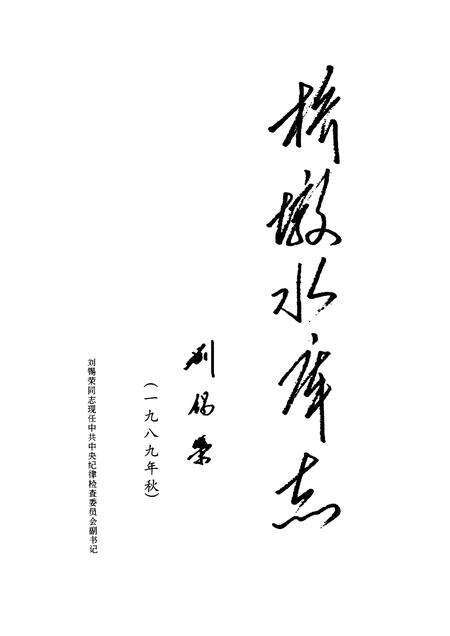 桥墩水库志
刘锡荣
(一九八九年秋)
刘锡荣同志现任中共中央纪律检查委员会副书记